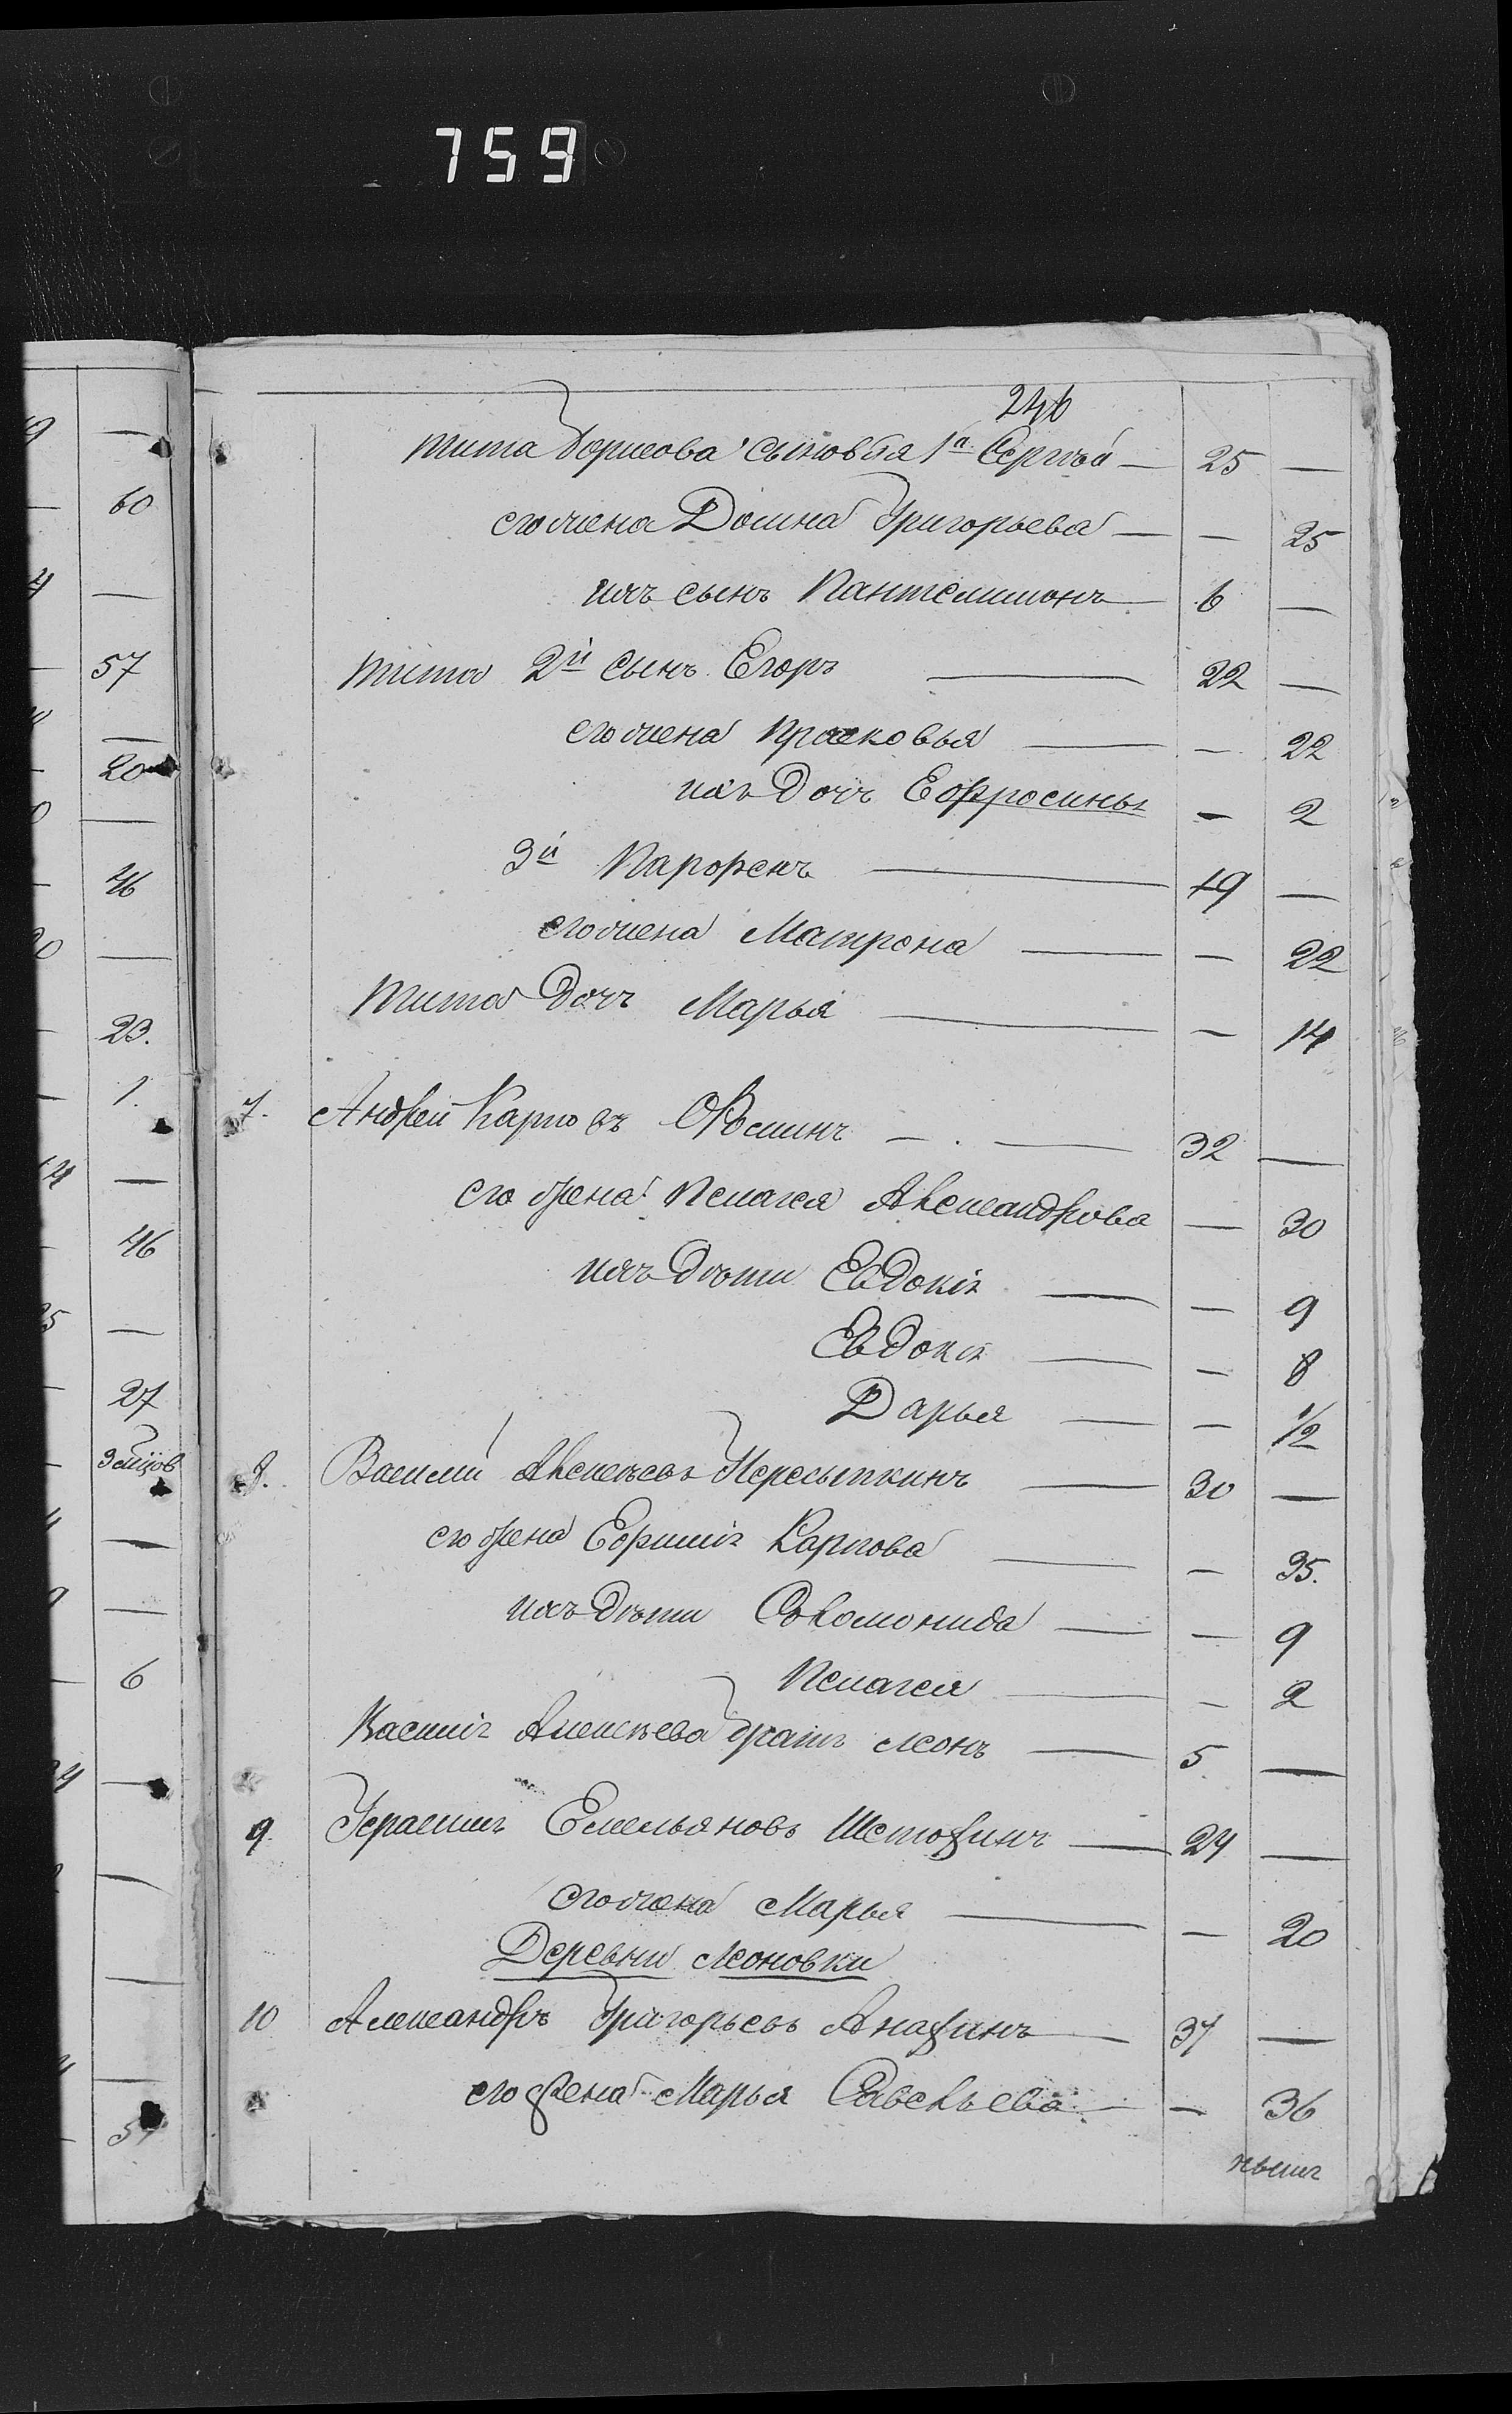 759
246
Тита Борисова сыновья 1й Сергѣй — 25 —
его жена Домна Григорьева — — 25
ихъ сынъ Пантелимонъ — 6 —
Тита 2й сынъ Егоръ — 22 —
его жена Прасковья — — 22
ихъ дочь Ефросинья — 2
3й Парфенъ — 19 —
его жена Матрона — — 22
Тита дочь Марья — — 14
7. Андрей Карповъ — 32 —
его жена Пелагея Александрова — 30
ихъ дѣти Евдокія — — 9
Евдокія — — 8
Дарья — — 1/2
8. Василий Алексѣевъ Пересыпкинъ — 30 —
его жена Ефимія Карпова — — 35.
ихъ дѣти Соломонида — — 9
Пелагея — — 2
Василія Алексѣева братъ Леонъ — 5 —
9. Герасимъ Емельяновъ — 24 —
его жена Марья — — 20
Деревни Леоновки
10 Александръ Григорьевъ Анафинъ — 37 —
его жена Марья Савельева — — 36
60
57
20
46
23.
1.
46
27
6